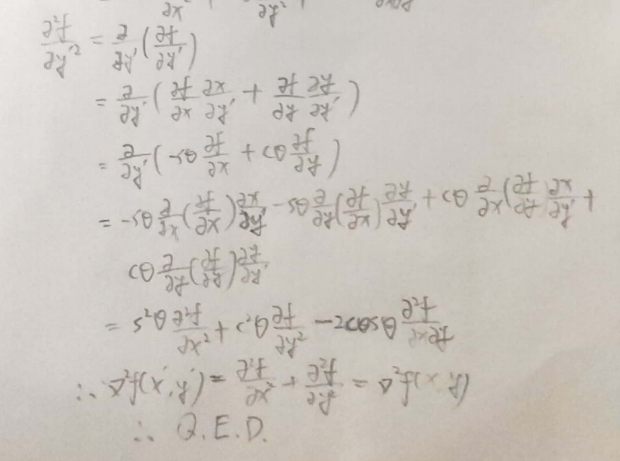 ∂x² ∂y² ∂x∂y
∂²f/∂y'² = ∂/∂y' (∂f/∂y')
= ∂/∂y' (∂f/∂x ∂x/∂y' + ∂f/∂y ∂y/∂y')
= ∂/∂y' (-sθ ∂f/∂x + cθ ∂f/∂y)
= -sθ ∂/∂x (∂f/∂x) ∂x/∂y' - sθ ∂/∂y (∂f/∂x) ∂y/∂y' + cθ ∂/∂x (∂f/∂y) ∂x/∂y' +
cθ ∂/∂y (∂f/∂y) ∂y/∂y'
= s²θ ∂²f/∂x² + c²θ ∂²f/∂y² - 2cθsθ ∂²f/∂x∂y
∴ ∇²f(x',y') = ∂²f/∂x² + ∂²f/∂y² = ∇²f(x,y)
∴ Q.E.D.